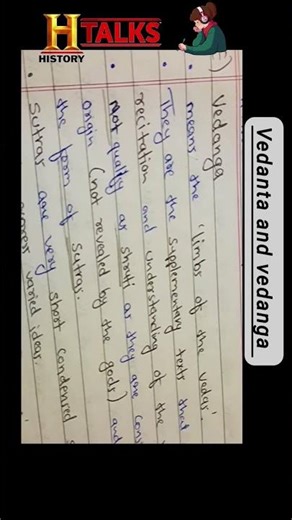 H TALKS
HISTORY
Vedanta and vedanga
) Vedanga
• means the 'limbs of the vedas'.
• They are the supplementary texts that
recitation and understanding of the
• Not qualify as shruti as they are cons
origin (not revealed by the gods) and
the form of sutras.
• Sutras are very short condensed
varied ideas.